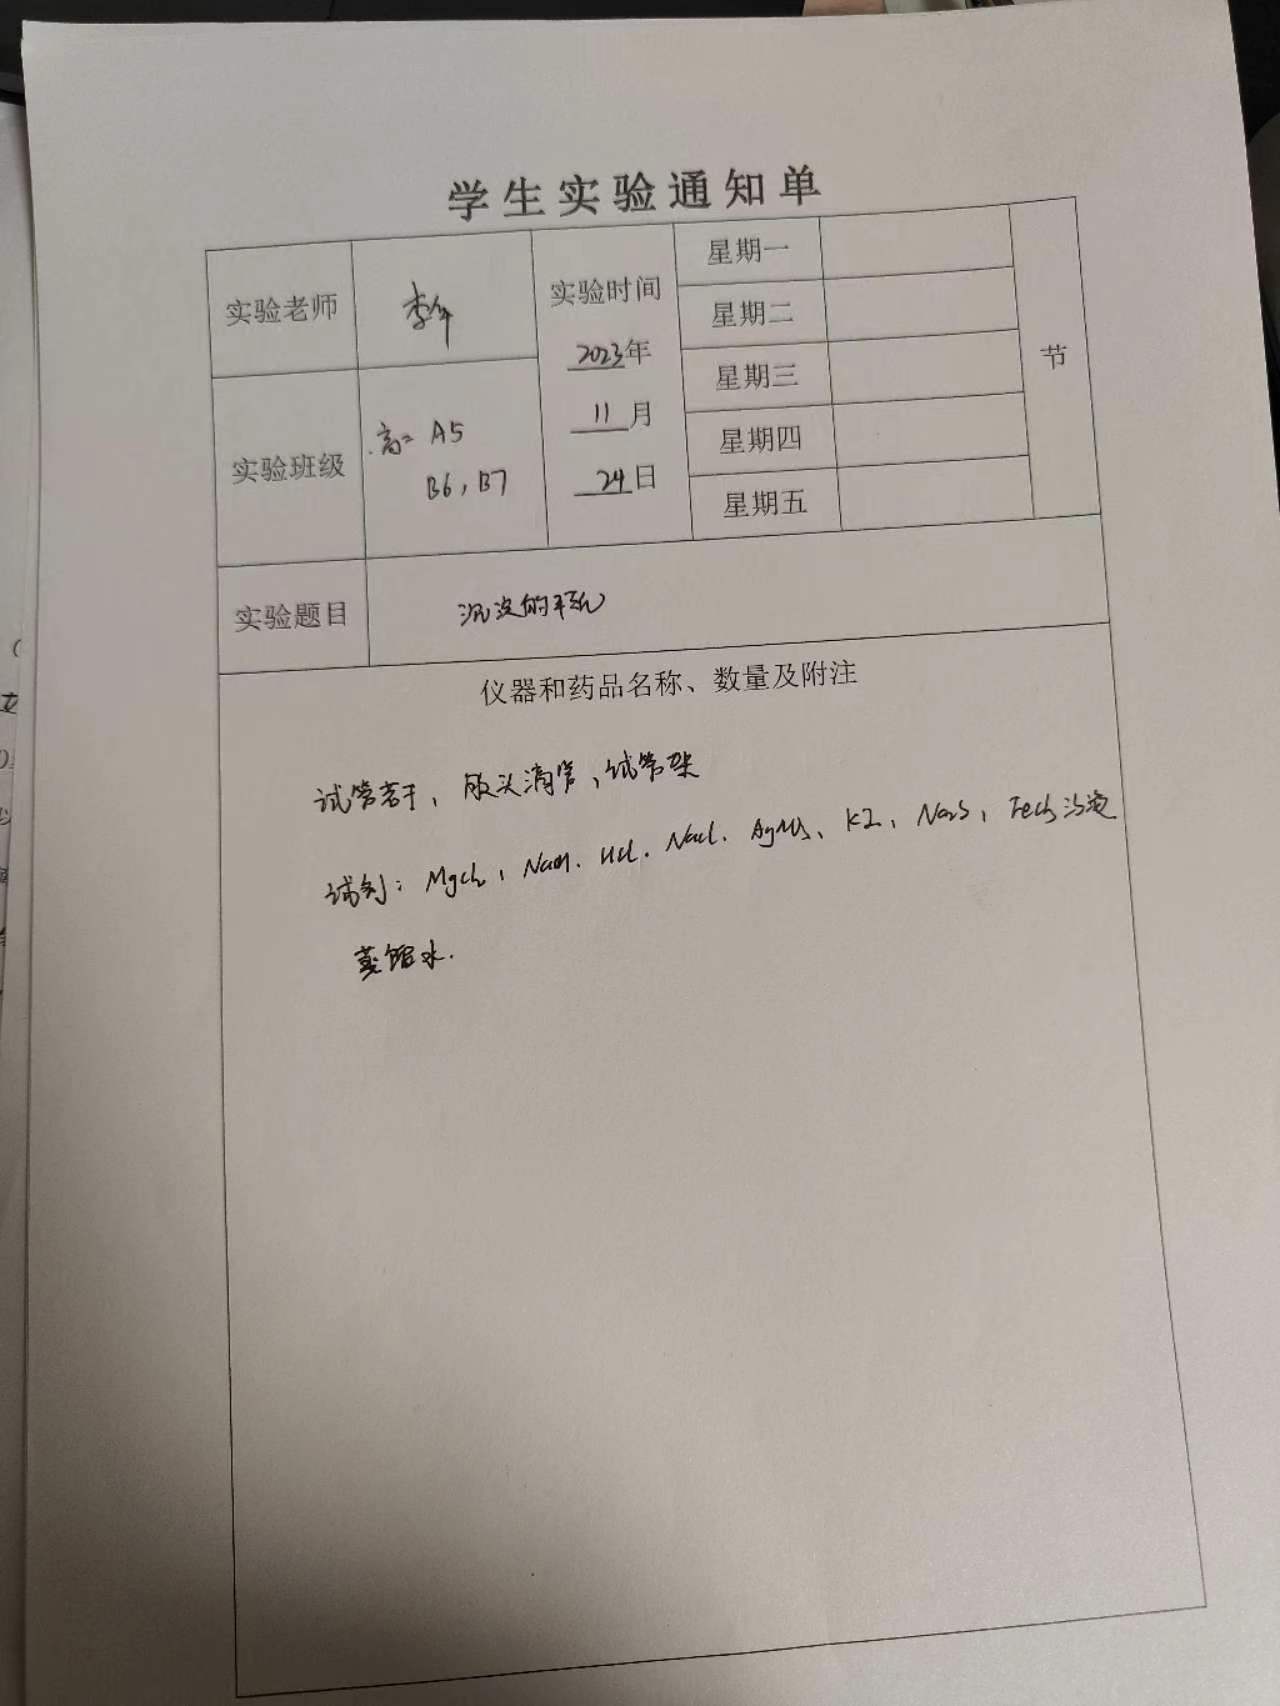 学生实验通知单
实验老师
实验时间
2023年
11月
24日
星期一
星期二
星期三
星期四
星期五
节
实验班级
高二 A5
B6，B7
实验题目
沉淀的
仪器和药品名称、数量及附注
试管若干，胶头滴管，试管架
试剂：MgCl₂，NaOH、HCl、NaCl、AgNO₃、KI，Na₂S，FeCl₃溶液
蒸馏水.